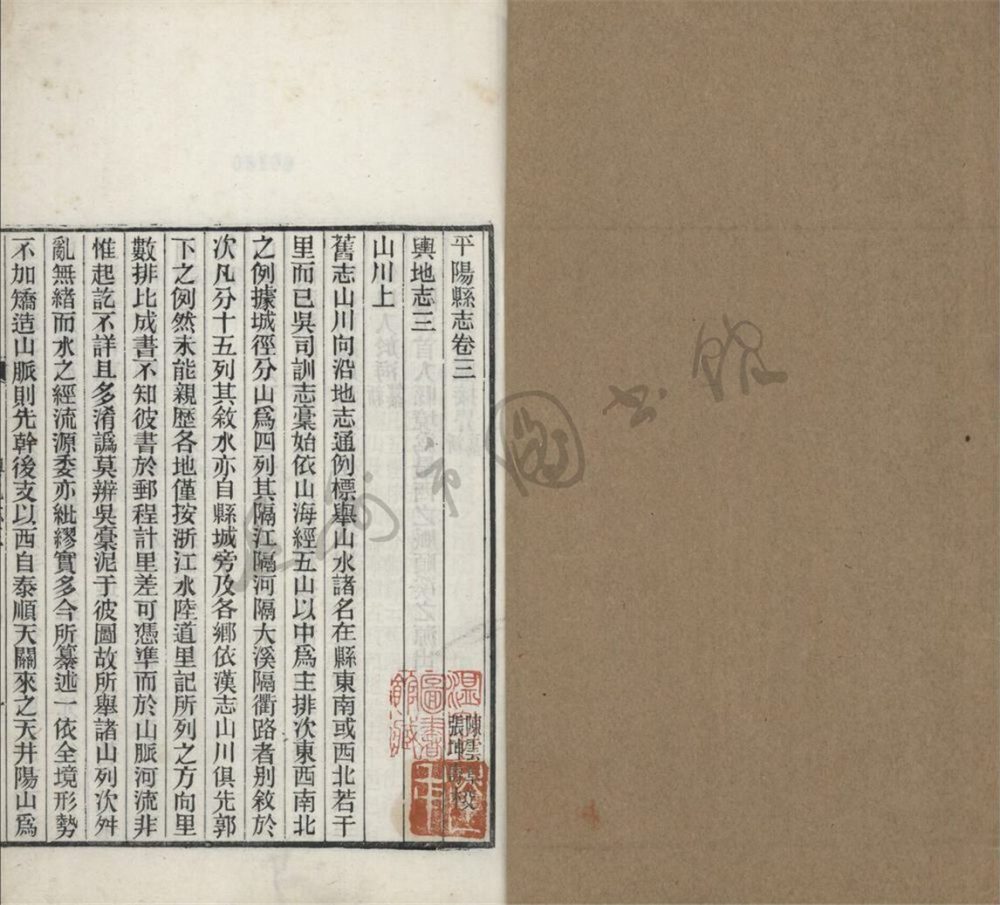 平陽縣志卷三
輿地志三
山川上
舊志山川向沿地志通例標舉山水諸名在縣東南或西北若干
里而已吳司訓志稾始依山海經五山以中爲主排次東西南北
之例據城徑分山爲四列其隔江隔河隔大溪隔衢路者别敘於
次凡分十五列其敘水亦自縣城旁及各鄉依漢志山川俱先郭
下之例然未能親歷各地僅按浙江水陸道里記所列之方向里
數排比成書不知彼書於郵程計里差可憑準而於山脈河流非
惟起訖不詳且多淆譌莫辨吳稾泥于彼圖故所舉諸山列次舛
亂無緒而水之經流源委亦紕繆實多今所纂述一依全境形勢
不加矯造山脈則先幹後支以西自泰順天關來之天井陽山爲
陳雲
張坤
校
圖書
館藏
溫
市圖書館